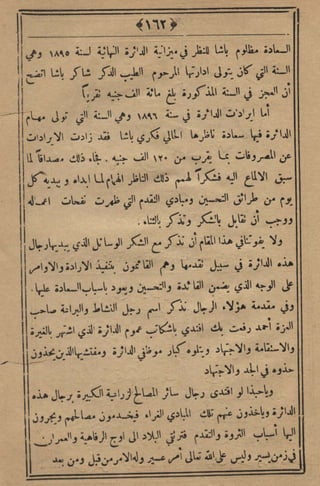 ﴿ ١٦٢ ﴾
السعادة مظلوم باشا للنظر في ميزانية الدائرة النهائية لسنة ١٨٩٥ وهي
السنة التي كان يتولى ادارتها المرحوم الطيب الذكر شاكر باشا اتضح
أن العجز في السنة المذكورة بلغ مائة الف جنيه تقريباً
أما ايرادات الدائرة في سنة ١٨٩٦ وهي السنة التي تولى مهام
الدائرة فيها سعادة ناظرها الحالي فكري باشا فقد زادت الايرادات
عن المصروفات بما يقرب من ١٢٠ الف جنيه . فجاء ذلك مصداقاً لما
سبق الالماع اليه فشكراً لهمم ذلك الناظر الهمام لما ابداه و يبديه كل
يوم من طرائق التحسين ومبادي التقدم التي ظهرت نفحات اعماله
ووجب أن تقابل بالشكر وتذكر بالثناء .
ولا يفوتنا في هذا المقام أن نذكر مع الشكر الوسائل الذي يبديها رجال
هذه الدائرة في سبيل تقدمها وهم القائمون بتنفيذ الارادة والاوامر
على الوجه الذي يضمن الفائدة والتحسين ويعود باسباب السعادة عليها .
وفي مقدمة هؤلاء الرجال نذكر اسم رجل النشاط والبراعة صاحب
العزة أحمد رفعت بك افندي باشكاتب عموم الدائرة الذي اشتهر بالغيرة
والاستقامة والاجتهاد ويتلوه كبار موظفي الدائرة ومفتشيها الذين يحذون
حذوه في الجد والاجتهاد
وياحبذا لو اقتدى رجال سائر المصالح الزراعية الكبيرة برجال هذه
الدائرة وياخذون عنهم تلك المبادي الغراء فيخدمون مصالحهم ويجرون
اليها أسباب الثروة والتقدم فترتقي البلاد الى اوج الرفاهية والعمران
في زمن يسير وليس على الله تعالى أمر عسير وله الامر من قبل ومن بعد